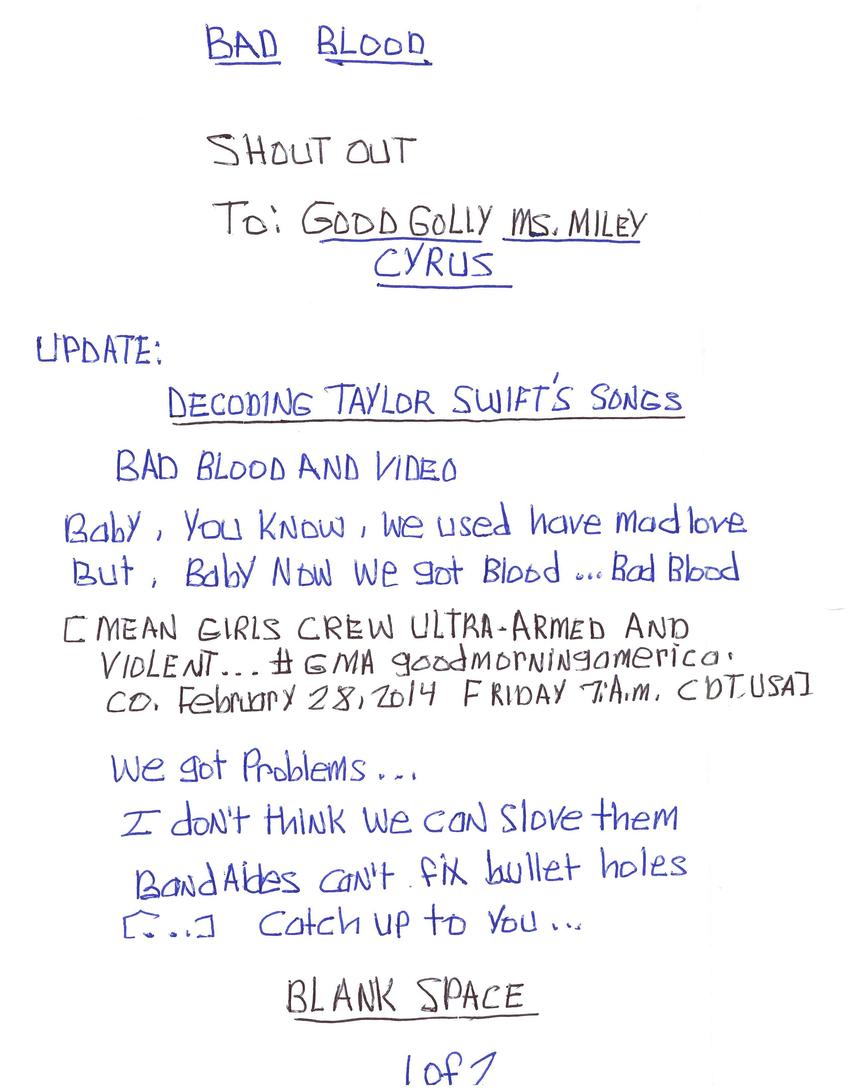 BAD BLOOD
SHOUT OUT
To: GOOD GOLLY MS. MILEY
CYRUS
UPDATE:
DECODING TAYLOR SWIFT'S SONGS
BAD BLOOD AND VIDEO
Baby, You KNOW, We used have mad love
But, Baby NOW We got Blood ... Bad Blood
[MEAN GIRLS CREW ULTRA-ARMED AND
VIOLENT... # GMA goodmorningamerica.
CO. February 28, 2014 FRIDAY 7:A.M. CDT.USA]
We got Problems...
I don't think We can Slove them
BandAides can't fix bullet holes
[...] Catch up to You...
BLANK SPACE
1 of 7